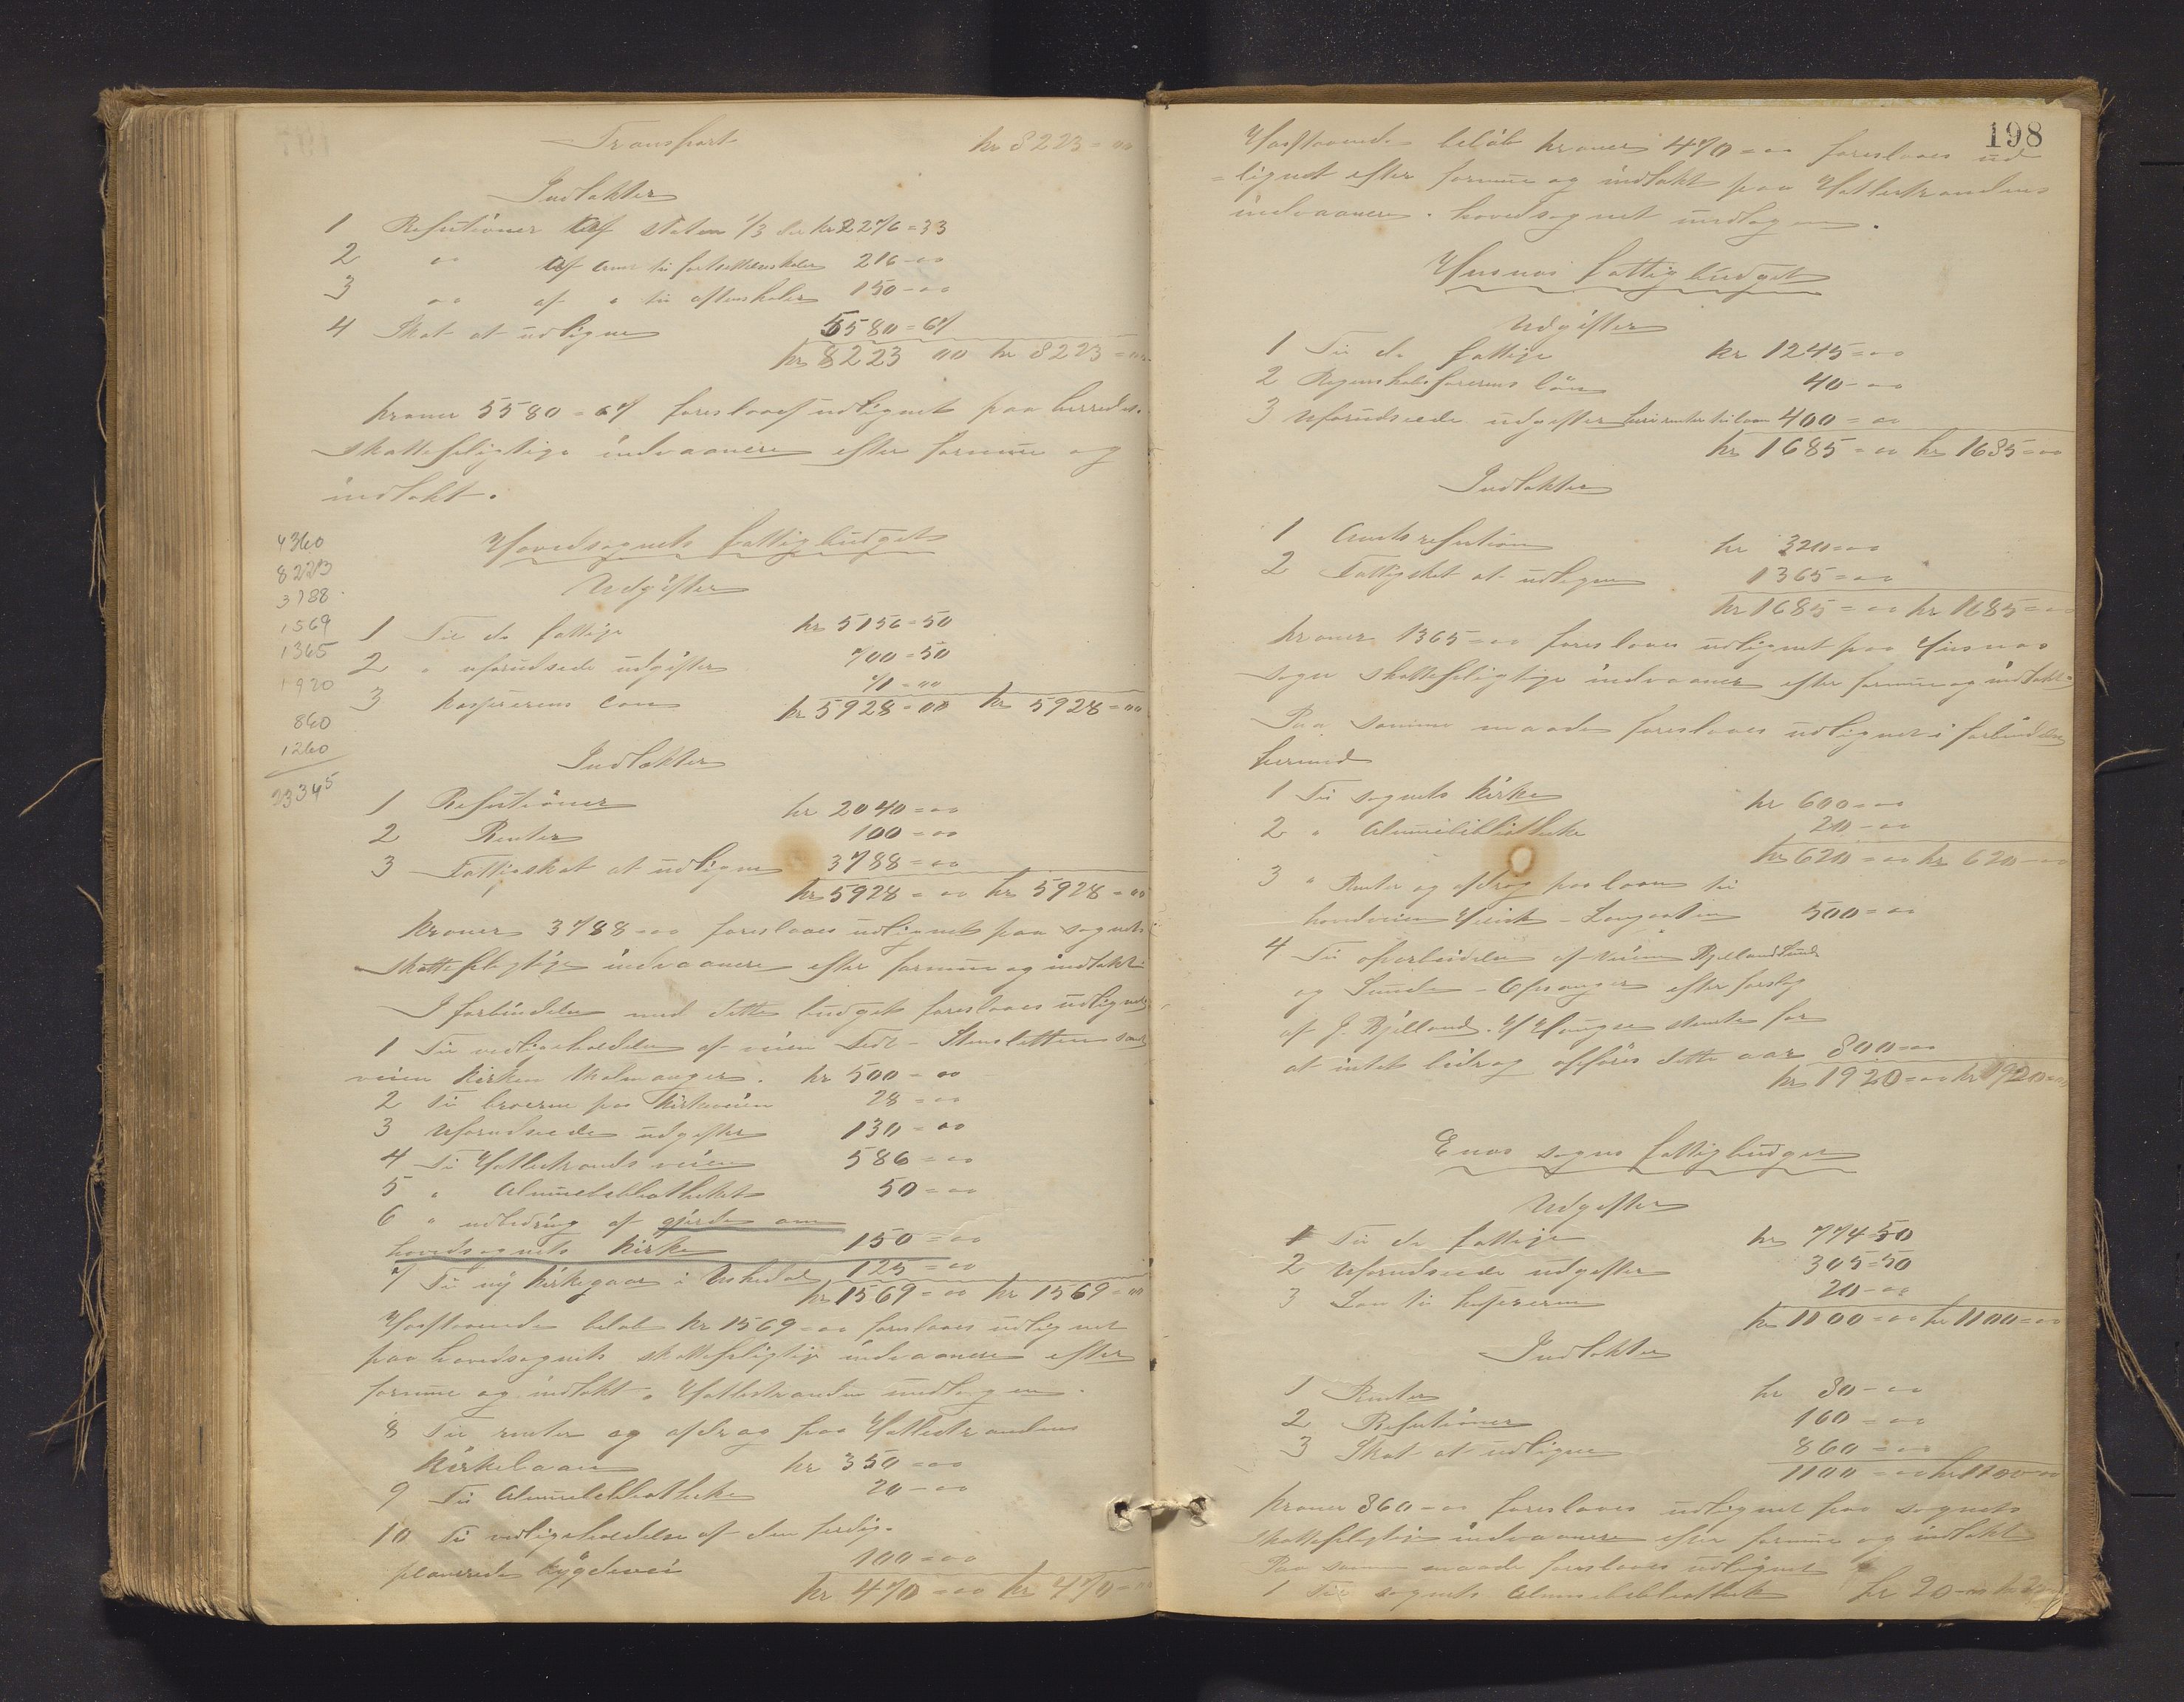 Transport kr 8223=00
Indtækter
1 Refutioner af staten 1/3 del kr 2276=33
2 " af amt til fortsættelsskoler 216=00
3 " af " til aftenskoler 150=00
4 Skat at udligne 5580=67
kr 8223 00 kr 8223=00
kroner 5580=67 foreslaaes udlignet paa herredets
skattepligtige indvaanere efter formue og
indtækt.
Hovedsognets fattigbudget
Udgifter
1 Til de fattige kr 5156=50
2 " uforudsede udgifter 700=50
3 Kasserens løn 71=00
kr 5928=00 kr 5928=00
4360
8223
3788
1569
1365
1920
860
1260
23345
Indtækter
1 Refutioner kr 2040=00
2 Renter 100=00
3 Fattigskat at udligne 3788=00
kr 5928=00 kr 5928=00
kroner 3788=00 foreslaaes udlignet paa sognets
skattepligtige indvaanere efter formue og indtækt
I forbindelse med dette budget foreslaaes udlignet
1 Til vedligeholdelse af veien Sedt - Stensletten samt
veien Kirken Malmanger. kr 500=00
2 Til broerne paa Kirkeveien 28=00
3 Uforudseede udgifter 130=00
4 Til Hatlestrands veien 586=00
5 " Almuebibliotheket 50=00
6 " udbedring af gjerde om
hovedsognets kirke 150=00
7 Til ny kirkegaar i Uskedal 125=00
kr 1569=00 kr 1569=00
Hosstaaende beløb kr 1569=00 foreslaaes udlignet
paa hovedsognets skattepligtige indvaanere efter
formue og indtækt. Hatlestranden undtagen.
8 Til renter og afdrag paa Hatlestrandens
Kirkelaan kr 350=00
9 Til Almuebibliotheke 20=00
10 Til vedligeholdelse af den ferdig-
planerede bygdevei 100=00
kr 470=00 kr 470=00
198
Hosstaaende beløb kroner 470=00 foreslaaes ud
=lignet efter formue og indtækt paa Hatlestrandens
indvaanere. hovedsognet undtagen.
Husnæs fattigbudget
Udgifter
1 Til de fattige kr 1245=00
2 Regnskabsførerens løn 40=00
3 Uforudseede udgifter heri renter til laan 400=00
kr 1685=00 kr 1685=00
Indtækter
1 Amtsrefution kr 320=00
2 Fattigskat at udligne 1365=00
kr 1685=00 kr 1685=00
kroner 1365=00 foreslaaes udlignet paa Husnæs
sogn skattepligtige indvaanere efter formue og indtækt
Paa samme maade foreslaaes udlignet i forbindelse
hermed
1 Til sognets kirke kr 600=00
2 " Almuebibliotheke 20=00
kr 620=00 kr 620=00
3 " Renter og afdrag paa laan til
hovedveien Huvik - Langaaten 500=00
4 Til oparbeidelse af veien Bjelland Sunde
og Sunde - Opsanger efter forslag
af J. Bjelland. H Haugse stemte for
at intet bidrag opføres dette aar 800=00
kr 1920=00 kr 1920=00
Enæs sogns fattigbudget
Udgifter
1 Til de fattige kr 774 50
2 Uforudseede udgifter 305=50
3 Løn til kassereren 20=00
kr 1100=00 kr 1100=00
Indtækter
1 Renter kr 80=00
2 Refutioner 160=00
3 Skat at udligne 860=00
1100=00 kr 1100=00
kroner 860=00 foreslaaes udlignet paa sognets
skattepligtige indvaanere efter formue og indtækt
Paa samme maade foreslaaes udlignet
1 Til sognets Almuebibliothek kr 20=00 kr 20